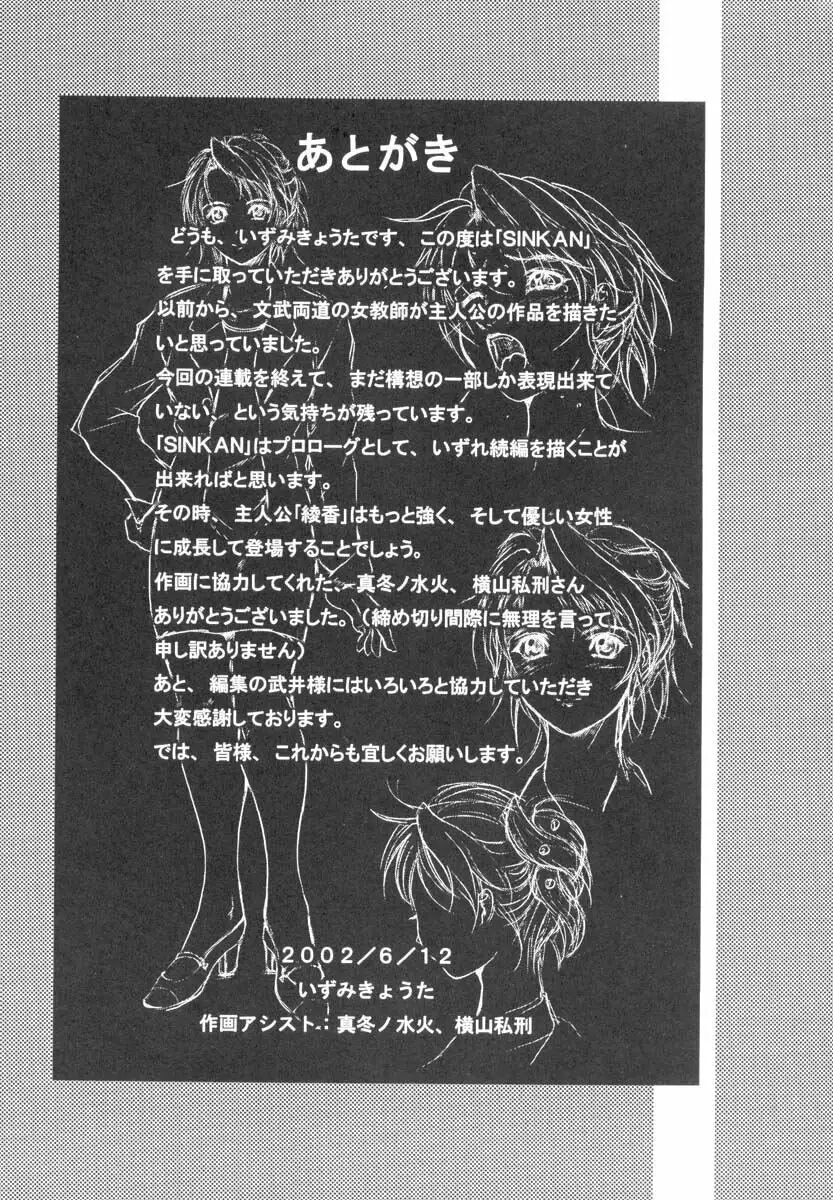 あとがき
どうも、いずみきょうたです、この度は「SINKAN」
を手に取っていただきありがとうございます。
以前から、文武両道の女教師が主人公の作品を描きた
いと思っていました。
今回の連載を終えて、まだ構想の一部しか表現出来て
いない、という気持ちが残っています。
「SINKAN」はプロローグとして、いずれ続編を描くことが
出来ればと思います。
その時、主人公「綾香」はもっと強く、そして優しい女性
に成長して登場することでしょう。
作画に協力してくれた、真冬ノ水火、横山私刑さん
ありがとうございました。（締め切り間際に無理を言って
申し訳ありません）
あと、編集の武井様にはいろいろと協力していただき
大変感謝しております。
では、皆様、これからも宜しくお願いします。
２００２／６／１２
いずみきょうた
作画アシスト：真冬ノ水火、横山私刑